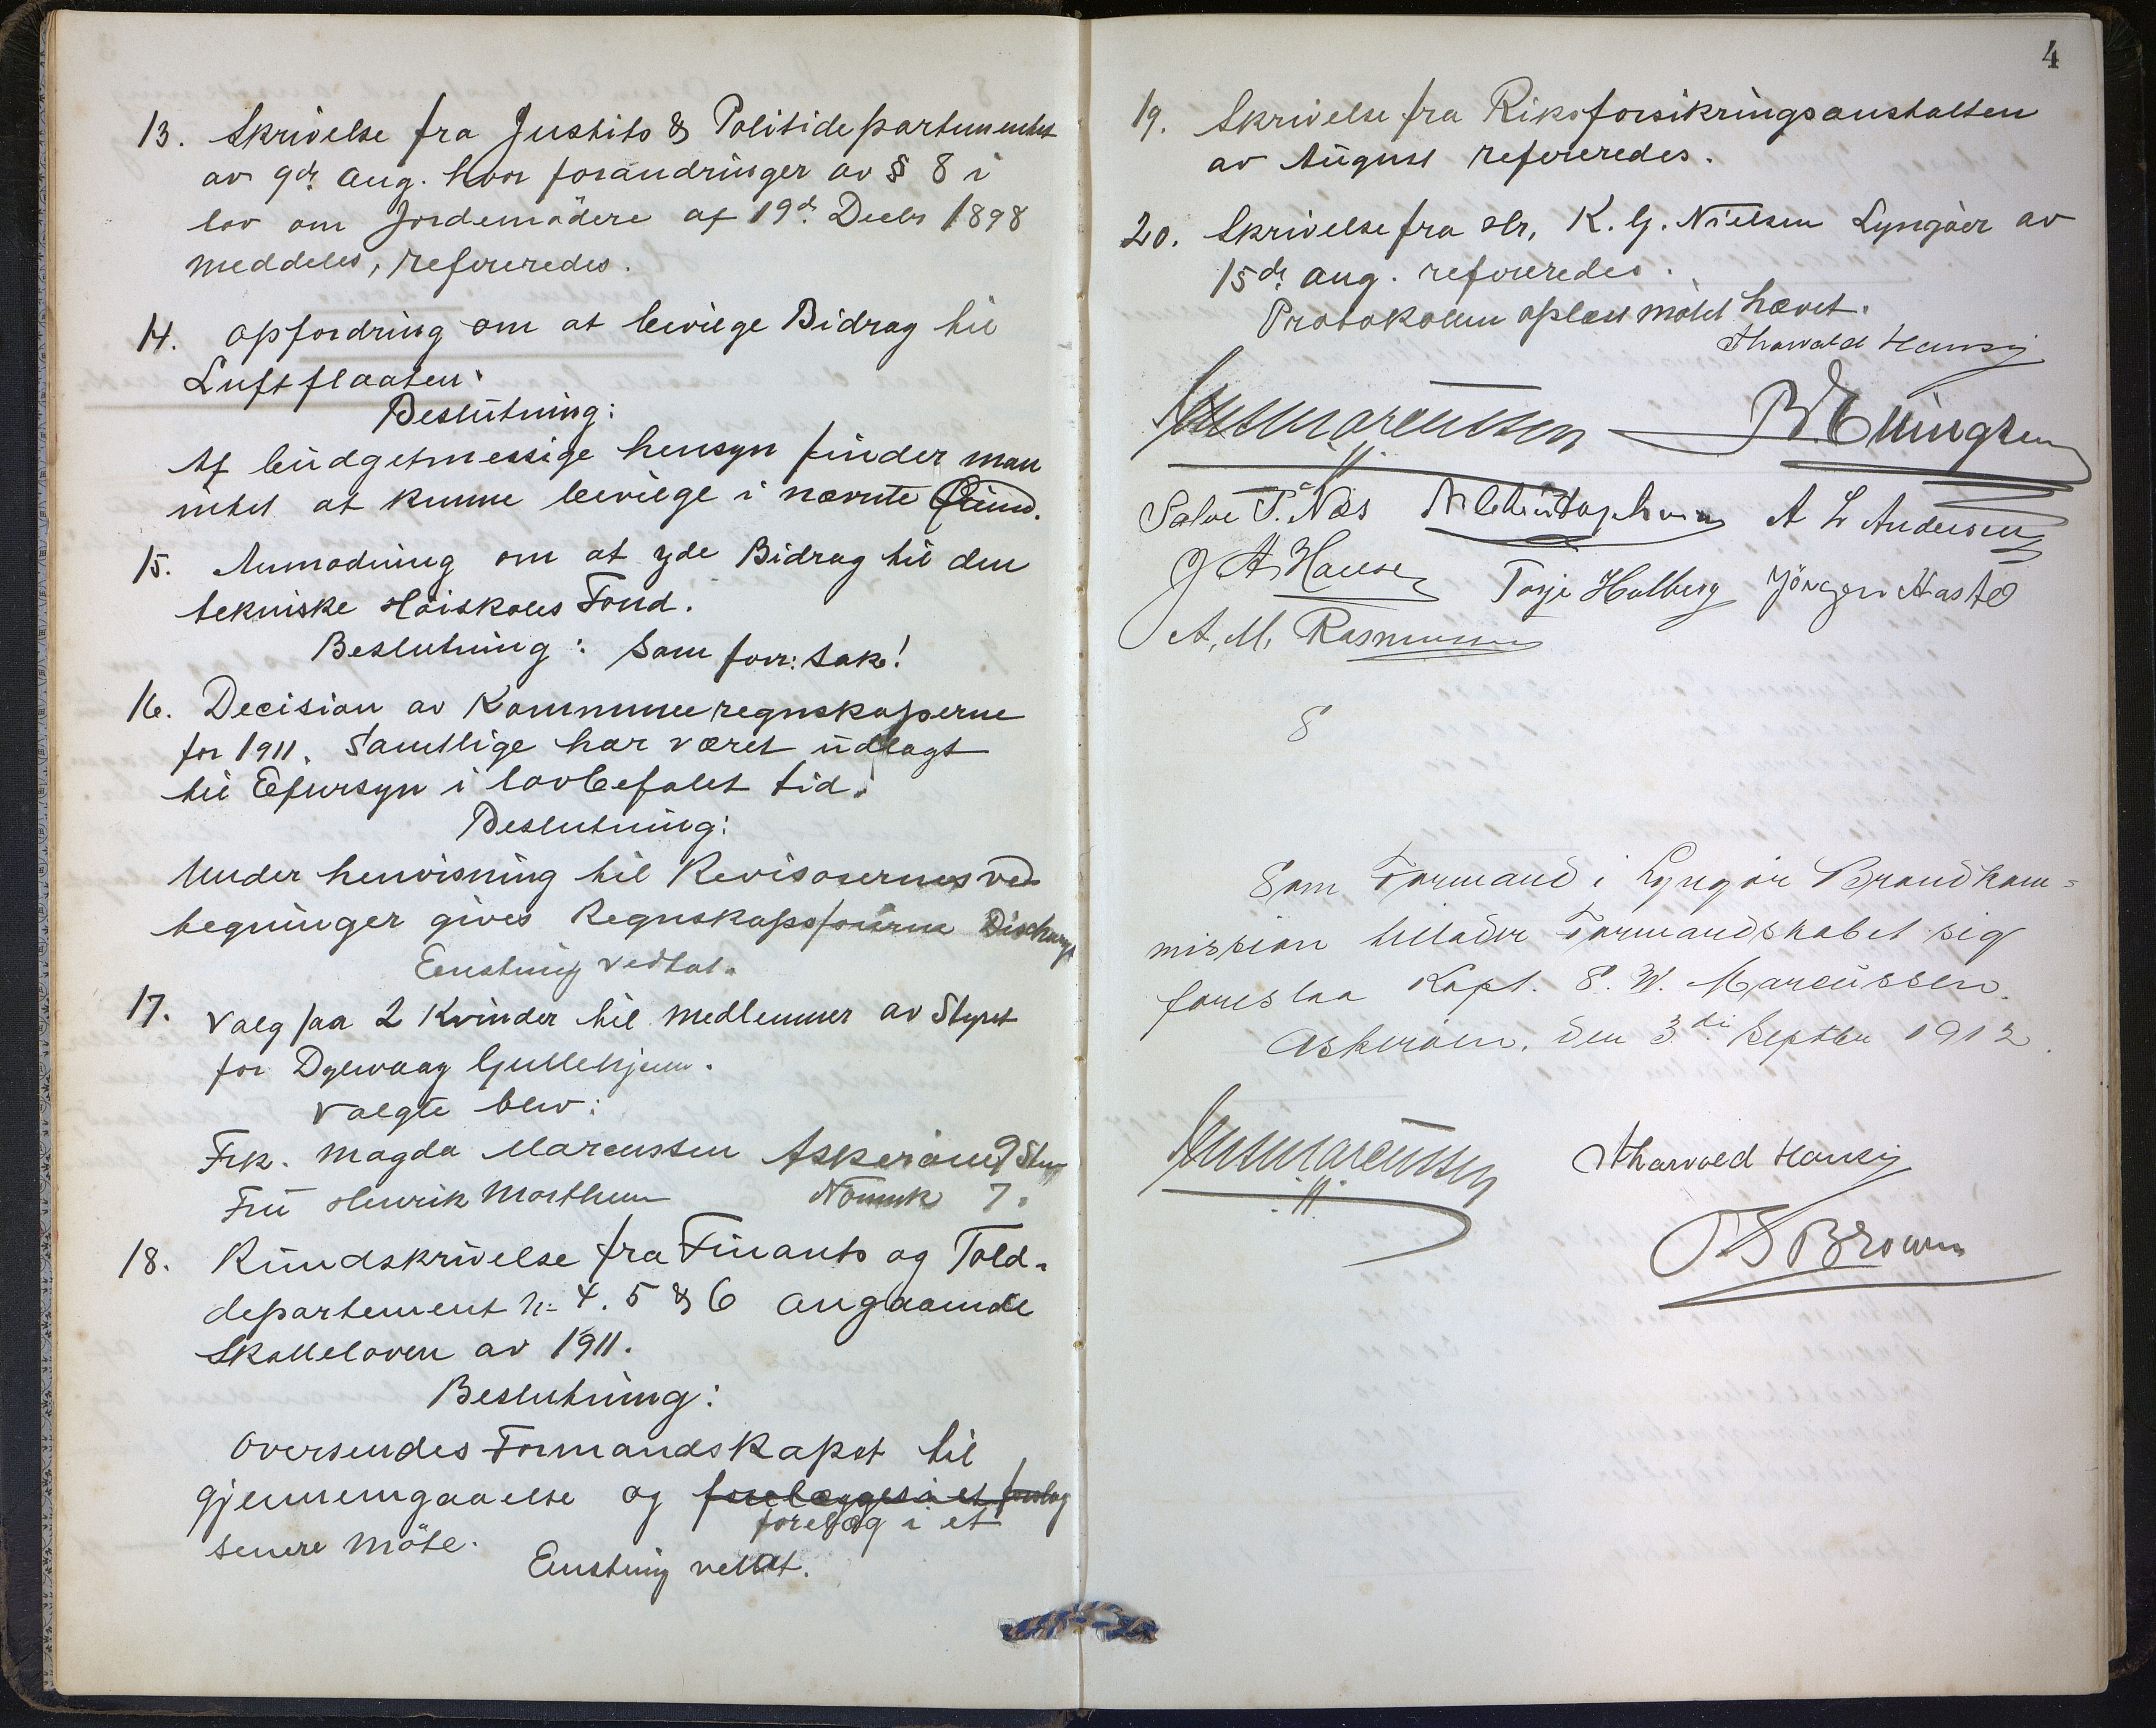 13. Skrivelse fra Justits & Politidepartementet
av 9de Aug. hvor forandringer av § 8 i
lov om Jordemödere af 19de Decbr 1898
meddeles, refereredes.
14. Opfordring om at bevilge Bidrag til
Luftflaaten.
Beslutning:
Af budgetmessige hensyn finder man
intet at kunne bevilge i nævnte Öiemd.
15. Anmodning om at yde Bidrag til den
tekniske Höiskoles Fond.
Beslutning: Som forr: Sak!
16. Decision av Kommuneregnskaperne
for 1911. Samtlige har været udlagt
til Eftersyn i lovbefalet tid.
Beslutning:
Under henvisning til Revisorernes ved-
tegninger gives Regnskapsförerne Discharge
Enstemig vedtat.
17. Valg paa 2 Kvinder til medlemmer av Styret
for Dybvaag Gjestehjem.
Valgte blev:
Frk. Magda Marcussen Askeröen 9 Stem
Frü Henrik Morthens 7.
18. Rundskrivelse fra Finants og Told-
departement No 4. 5 & 6 angaaende
Skatteloven av 1911.
Beslutning:
Oversendes Formandskapet til
gjennemgaaelse og forelægges i et forslag
forelæg i et
senere Möte.
Enstemig vedtat.
4
19. Skrivelse fra Riksforsikringsanstalten
av August refereredes.
20. Skrivelse fra Hr. K. G. Nielsen Lyngöer av
15de Aug. refereredes.
Protokollen oplæst mötet hævet.
Tharvald Hansen
Marcussen B. Ellingsen
Salve T. Næs A L Andersen
G A Hansen Torje Holberg Jörgen Hasteö
A. M. Rasmussen
S
Som Formand i Lyngör Brandkom=
mission tillader Formandskabet sig
foreslaa Kapt. S. W. Marcüssen.
Askeröen, den 3die Septbr 1912.
Marcüssen Tharvald Hansen
T S Brown